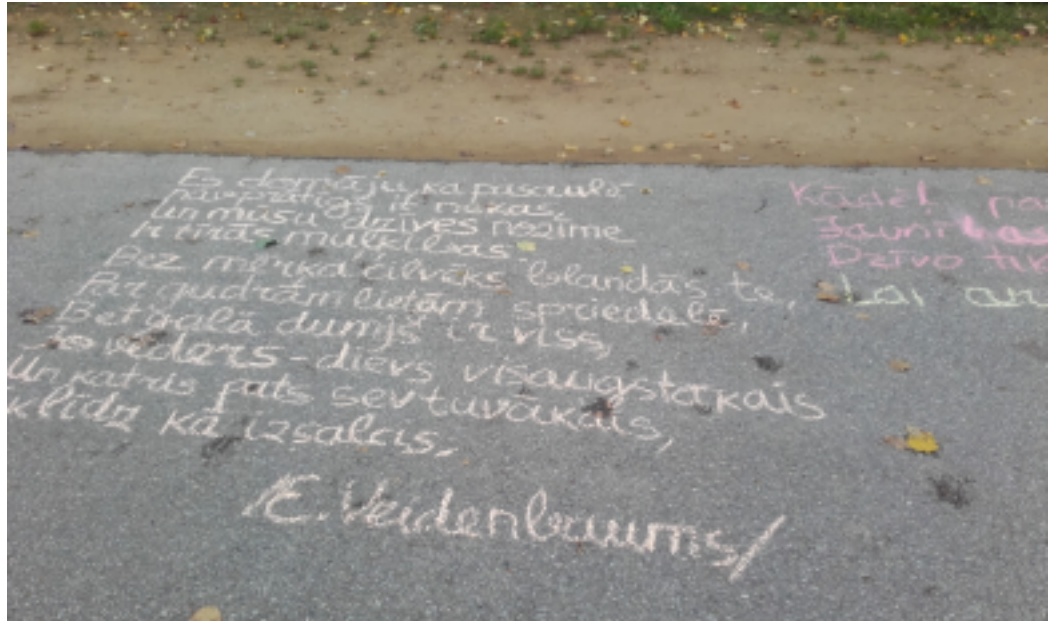 Es domāju, ka pasaulē
nav prātīgs it nekas,
un mūsu dzīves nozīme
Ir tīrās muļķības.
Bez mērķa cilvēks blandās te,
Par gudrām lietām spriedelē,
Bet galā dumjš ir viss,
vēders - dievs visaugstākais
Un katris pats sev tuvākais,
klīdz kā izsalcis.
/E. Veidenbaums/
Kādēļ
Dzīvo
Lai